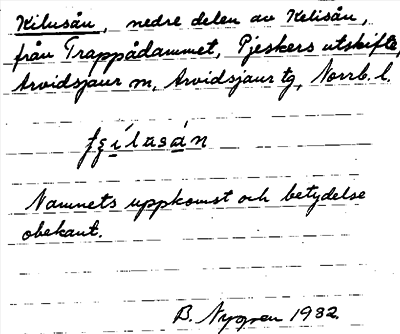 Kilusån, nedre delen av Kelisån,
från Trappådammet, Pjeskers utskifte,
Arvidsjaur sn, Arvidsjaur tg, Norrb. l.
Namnets uppkomst och betydelse
obekant.
B. Nygren 1932